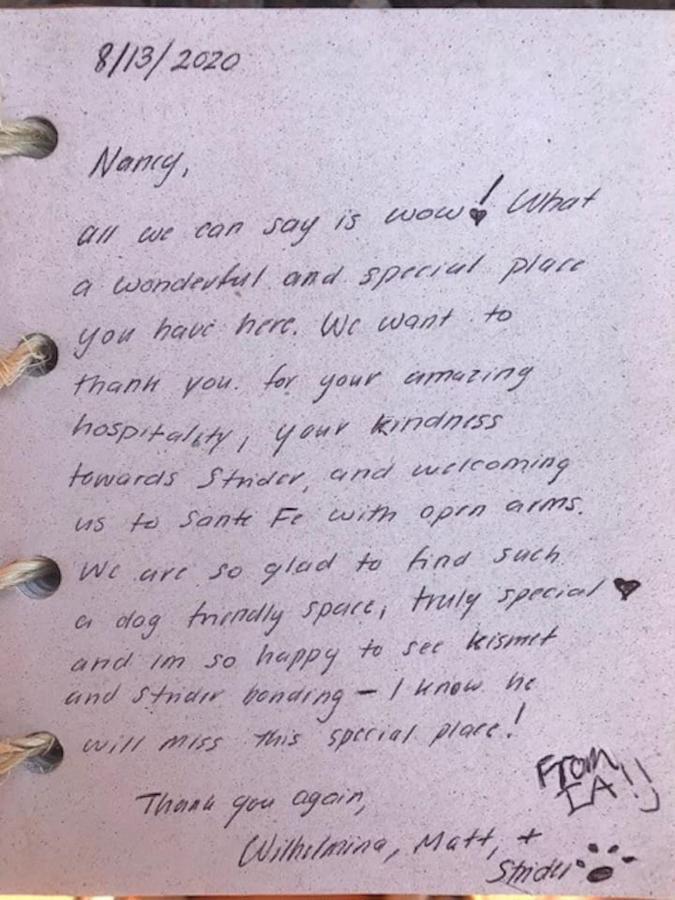 8/13/2020
Nancy,
all we can say is wow! What
a wonderful and special place
you have here. We want to
thank you for your amazing
hospitality, your kindness
towards Strider, and welcoming
us to Sante Fe with open arms.
We are so glad to find such
a dog friendly space, truly special ♥
and im so happy to see kismet
and Strider bonding – I know he
will miss this special place!
Thank you again,
Wilhelmina, Matt, +
Strider
From
LA!!